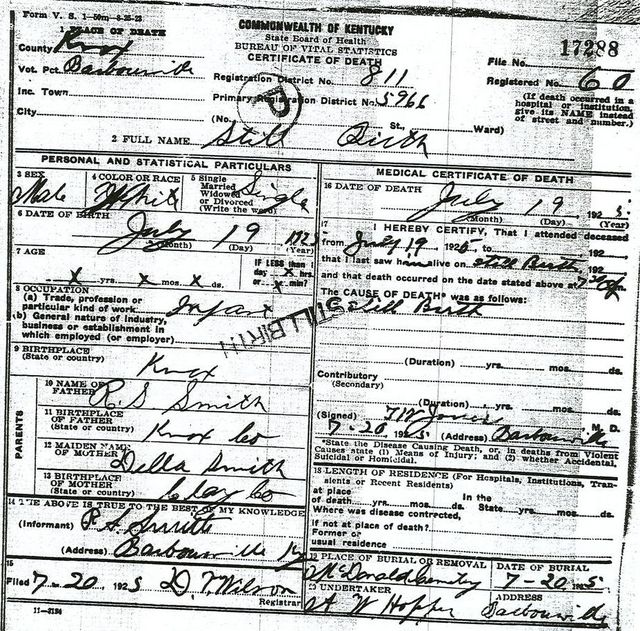 Form V. S. 1-50m-8-25-23
1 PLACE OF DEATH
COMMONWEALTH OF KENTUCKY
State Board of Health
BUREAU OF VITAL STATISTICS
CERTIFICATE OF DEATH
County Knox
File No. 17288
Vot. Pct. Barbourville
Registration District No. 811
Registered No. 60
Inc. Town
Primary Registration District No. 5966
(If death occurred in a hospital or institution, give its NAME instead of street and number.)
City
(No. St., Ward)
2 FULL NAME Still Birth
PERSONAL AND STATISTICAL PARTICULARS
3 SEX Male
4 COLOR OR RACE White
5 Single Married Widowed or Divorced (Write the word) Single
6 DATE OF BIRTH July 19 1925
(Month) (Day) (Year)
7 AGE
x yrs. x mos. x ds.
IF LESS than 1 day x hrs. or x min?
8 OCCUPATION
(a) Trade, profession or particular kind of work Infant
(b) General nature of industry, business or establishment in which employed (or employer)
STILLBIRTH
9 BIRTHPLACE
(State or country) Knox
PARENTS
10 NAME OF FATHER R. S Smith
11 BIRTHPLACE OF FATHER
(State or country) Knox Co
12 MAIDEN NAME OF MOTHER Della Smith
13 BIRTHPLACE OF MOTHER
(State or country) Clay Co
14 THE ABOVE IS TRUE TO THE BEST OF MY KNOWLEDGE
(Informant) R. S. Smith
(Address) Barbourville Ky
15
Filed 7-20 1925 D. T. Wilson
Registrar
11-3184
MEDICAL CERTIFICATE OF DEATH
16 DATE OF DEATH July 19 1925
(Month) (Day) (Year)
17 I HEREBY CERTIFY, That I attended deceased
from July 19 1925 to 192
that I last saw h alive on Still Birth 192
and that death occurred on the date stated above at m.
The CAUSE OF DEATH* was as follows:
Still Birth
(Duration) yrs. mos. ds.
Contributory
(Secondary)
(Duration) yrs. mos. ds.
(Signed) Jones M. D.
7-20 1925 (Address) Barbourville
*State the Disease Causing Death, or, in deaths from Violent
Causes state (1) Means of Injury; and (2) whether Accidental,
Suicidal or Homicidal.
18 LENGTH OF RESIDENCE (For Hospitals, Institutions, Transients or Recent Residents)
at place of death yrs. mos. ds. In the State yrs. mos. ds.
Where was disease contracted,
if not at place of death?
Former or
usual residence
19 PLACE OF BURIAL OR REMOVAL McDonald Cemetery
DATE OF BURIAL 7-20 1925
20 UNDERTAKER A W Hopper
ADDRESS Barbourville